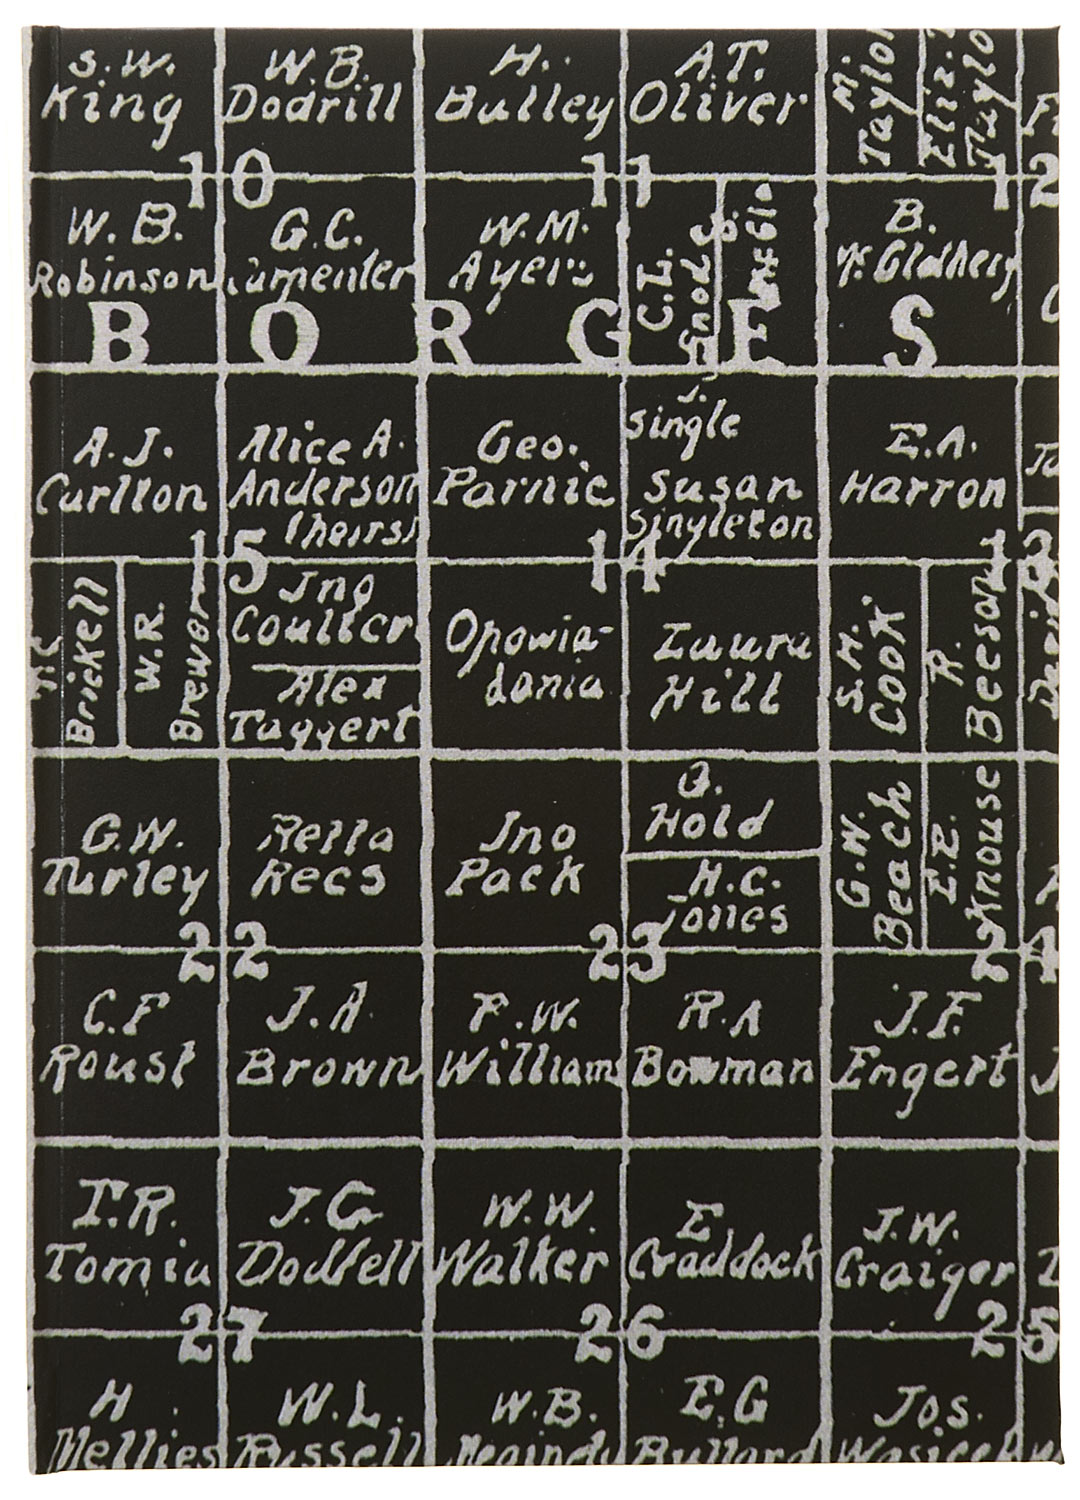 S. W.
King
W. B.
Dodrill
H.
Bulley
A. T.
Oliver
M.
Taylor
Eliz.
Taylo
10
11
12
W. B.
Robinson
G. C.
W. M.
Ayers
C. L.
B.
BORGES
A. J.
Carlton
Alice A.
Anderson
(heirs)
Geo.
Parnic
J.
Single
Susan
Singleton
E. A.
Harron
15
14
13
Brickell
W. R.
Brewer
Jno
Coulter
Alex
Taggert
Opowia-
dania
Laura
Hill
S. M.
Cook
R.
Beeson
G. W.
Turley
Rella
Recs
Jno
Pack
O.
Hold
H. C.
Jones
G. W.
Beach
E. E.
Knouse
22
23
24
C. F
Roust
J. A.
Brown
F. W.
Williams
R. A
Bowman
J. F.
Engert
T. R.
Tomia
J. G
W. W.
Walker
E.
Craddock
J. W.
Craiger
27
26
25
H
Mellies
W. L.
Russell
W. B.
E. G
Bullard
Jos.